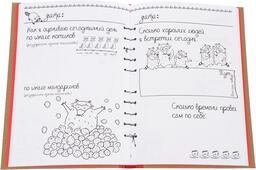 дата:
Как я оцениваю сегодняшний день
по шкале котиков
по шкале мандаринов
дата:
Сколько хороших людей
я встретил сегодня
Сколько времени провел
сам по себе.